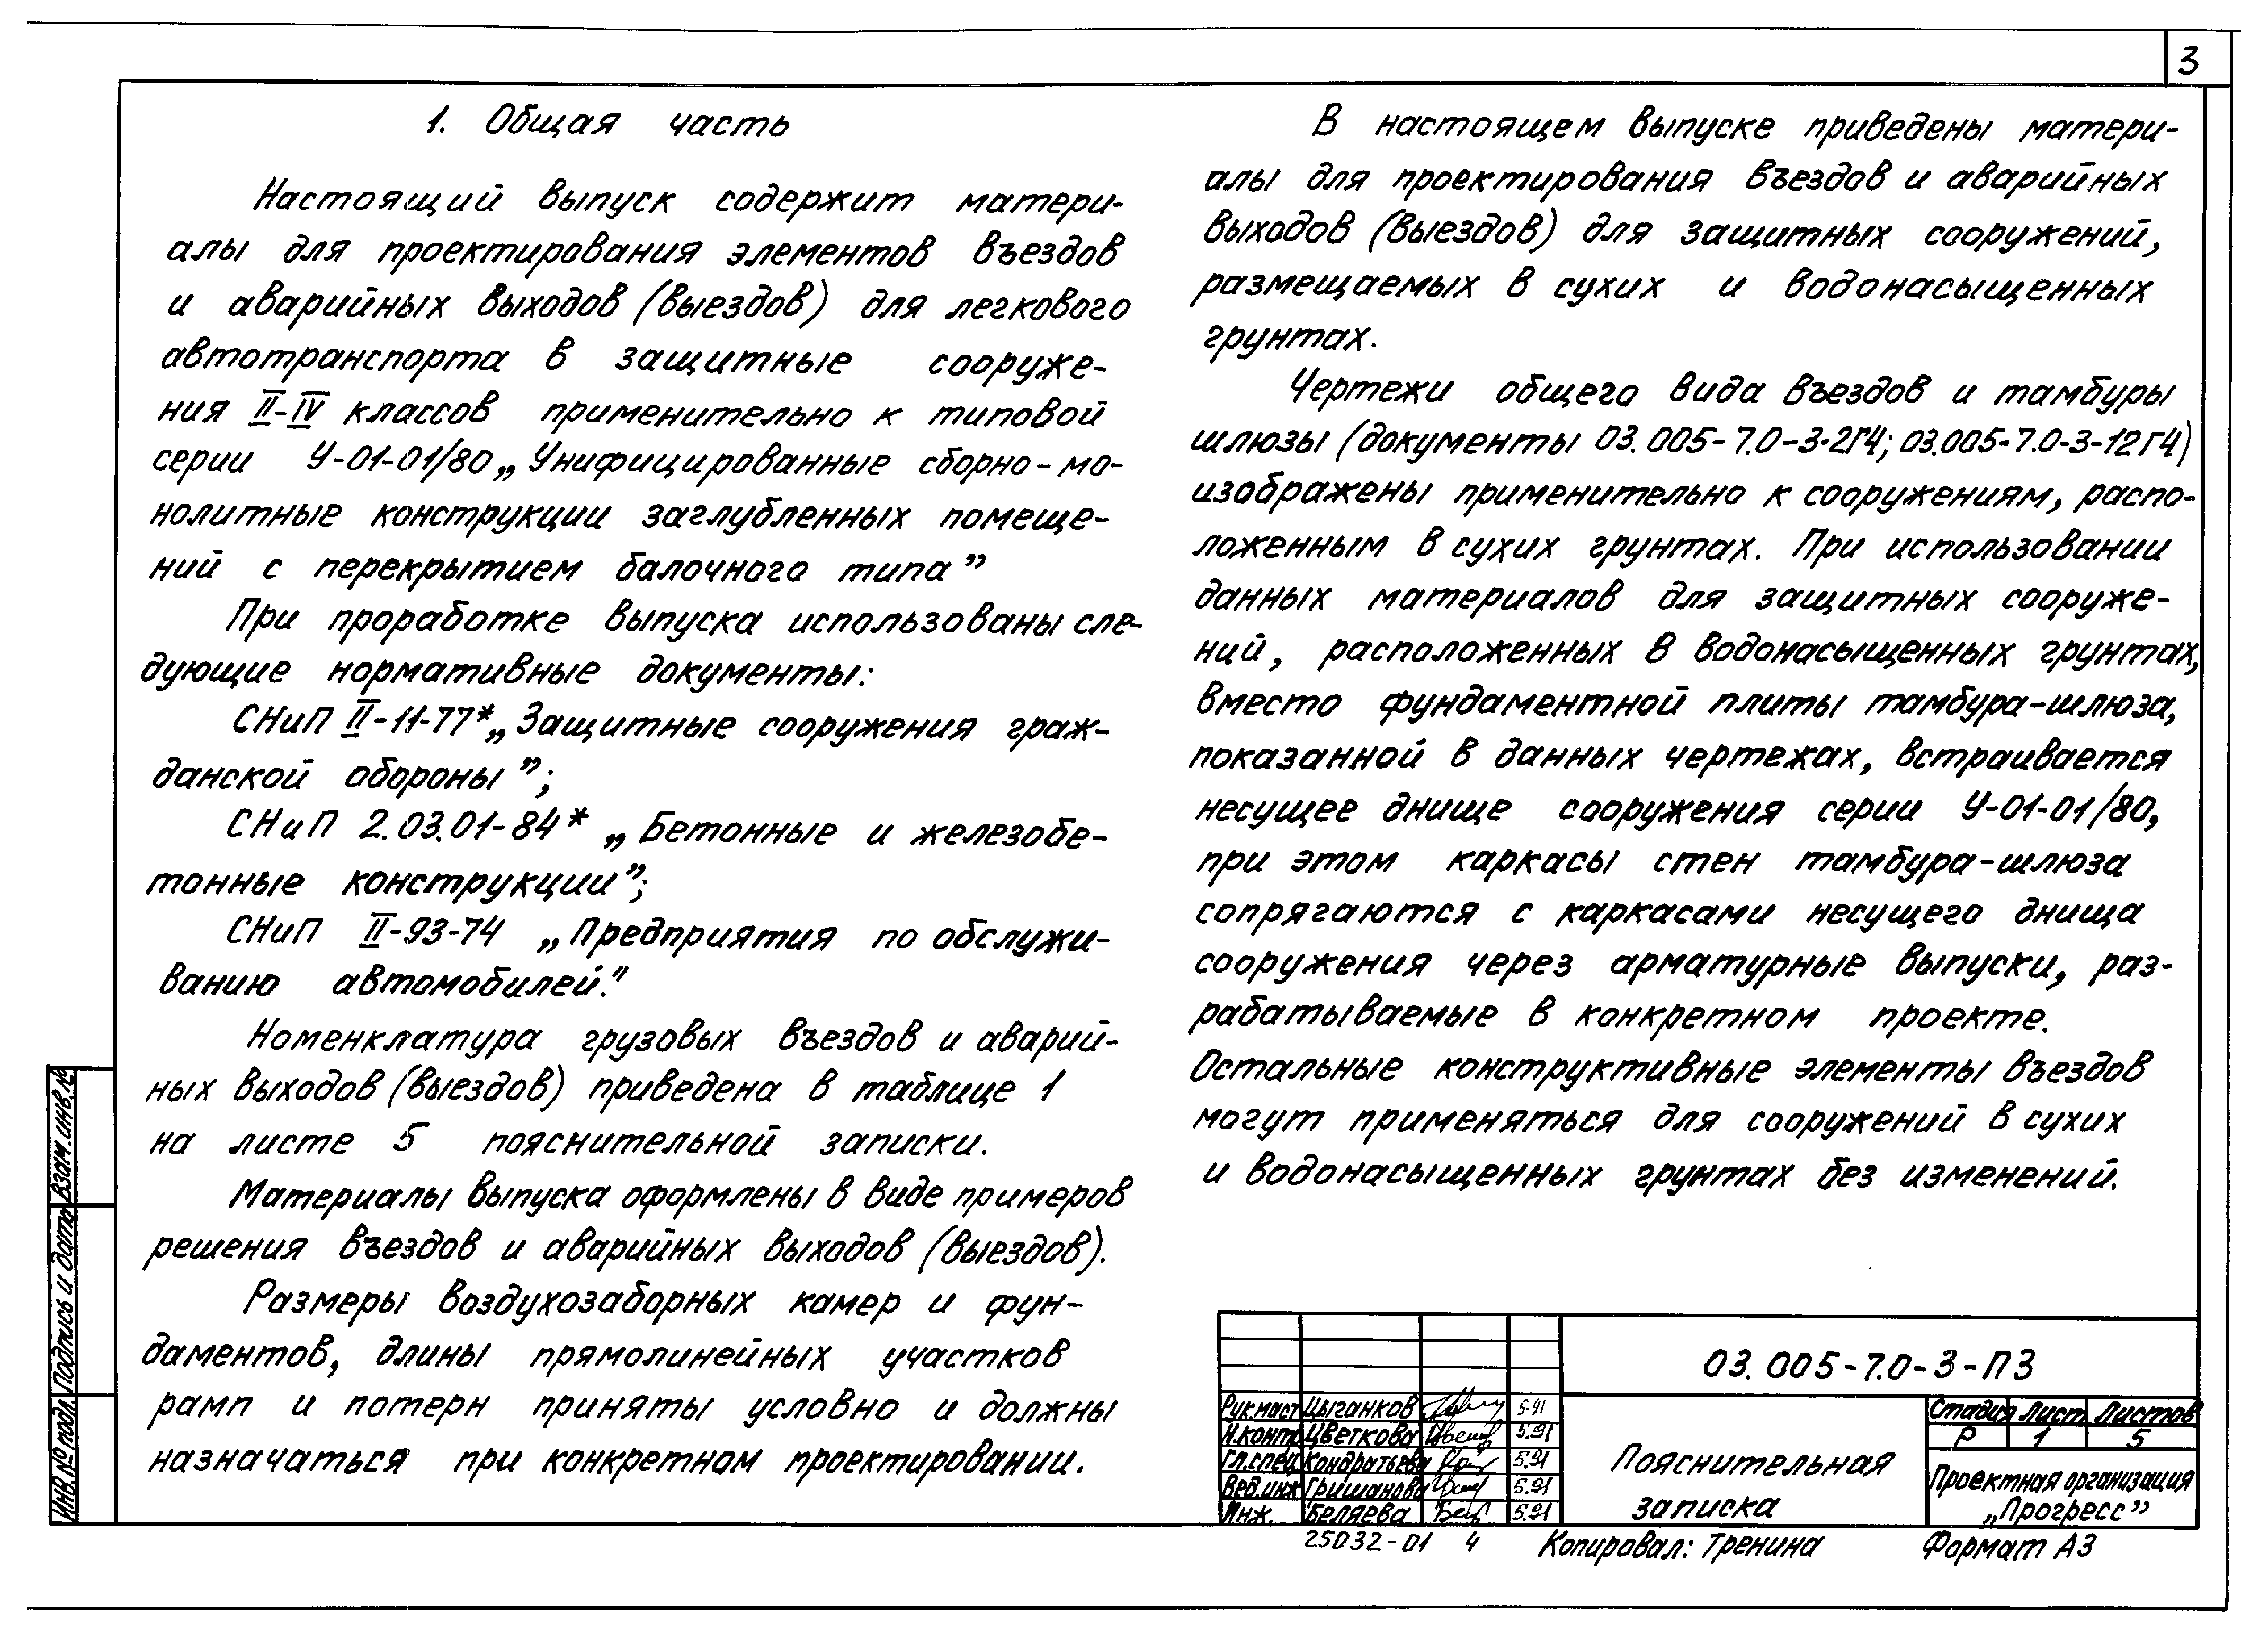 3
1. Общая часть
Настоящий выпуск содержит матери-
алы для проектирования элементов въездов
и аварийных выходов (выездов) для легкового
автотранспорта в защитные сооруже-
ния II-IV классов применительно к типовой
серии У-01-01/80 „Унифицированные сборно-мо-
нолитные конструкции заглубленных помеще-
ний с перекрытием балочного типа”
При проработке выпуска использованы сле-
дующие нормативные документы:
СНиП II-11-77* „Защитные сооружения граж-
данской обороны”;
СНиП 2.03.01-84* „Бетонные и железобе-
тонные конструкции”;
СНиП II-93-74 „Предприятия по обслужи-
ванию автомобилей."
Номенклатура грузовых въездов и аварий-
ных выходов (выездов) приведена в таблице 1
на листе 5 пояснительной записки.
Материалы выпуска оформлены в виде примеров
решения въездов и аварийных выходов (выездов).
Размеры воздухозаборных камер и фун-
даментов, длины прямолинейных участков
рамп и потерн приняты условно и должны
назначаться при конкретном проектировании.
В настоящем выпуске приведены матери-
алы для проектирования въездов и аварийных
выходов (выездов) для защитных сооружений,
размещаемых в сухих и водонасыщенных
грунтах.
Чертежи общего вида въездов и тамбуры
шлюзы (документы 03.005-7.0-3-2Г4; 03.005-7.0-3-12Г4)
изображены применительно к сооружениям, распо-
ложенным в сухих грунтах. При использовании
данных материалов для защитных сооруже-
ний, расположенных в водонасыщенных грунтах,
вместо фундаментной плиты тамбура-шлюза,
показанной в данных чертежах, встраивается
несущее днище сооружения серии У-01-01/80,
при этом каркасы стен тамбура-шлюза
сопрягаются с каркасами несущего днища
сооружения через арматурные выпуски, раз-
рабатываемые в конкретном проекте.
Остальные конструктивные элементы въездов
могут применяться для сооружений в сухих
и водонасыщенных грунтах без изменений.
Взам. инв. №
Подпись и дата
Инв. № подл.
03.005-7.0-3-ПЗ
Рук.маст Цыганков 5-91
Н.контр Цветкова 5.91
Гл.спец Кондратьева 5.91
Вед.инж Гришанова 5.91
Инж. Беляева 5.91
Пояснительная
записка
Стадия Лист Листов
Р 1 5
Проектная организация
„Прогресс”
25032-01 4 Копировал: Тренина Формат А3